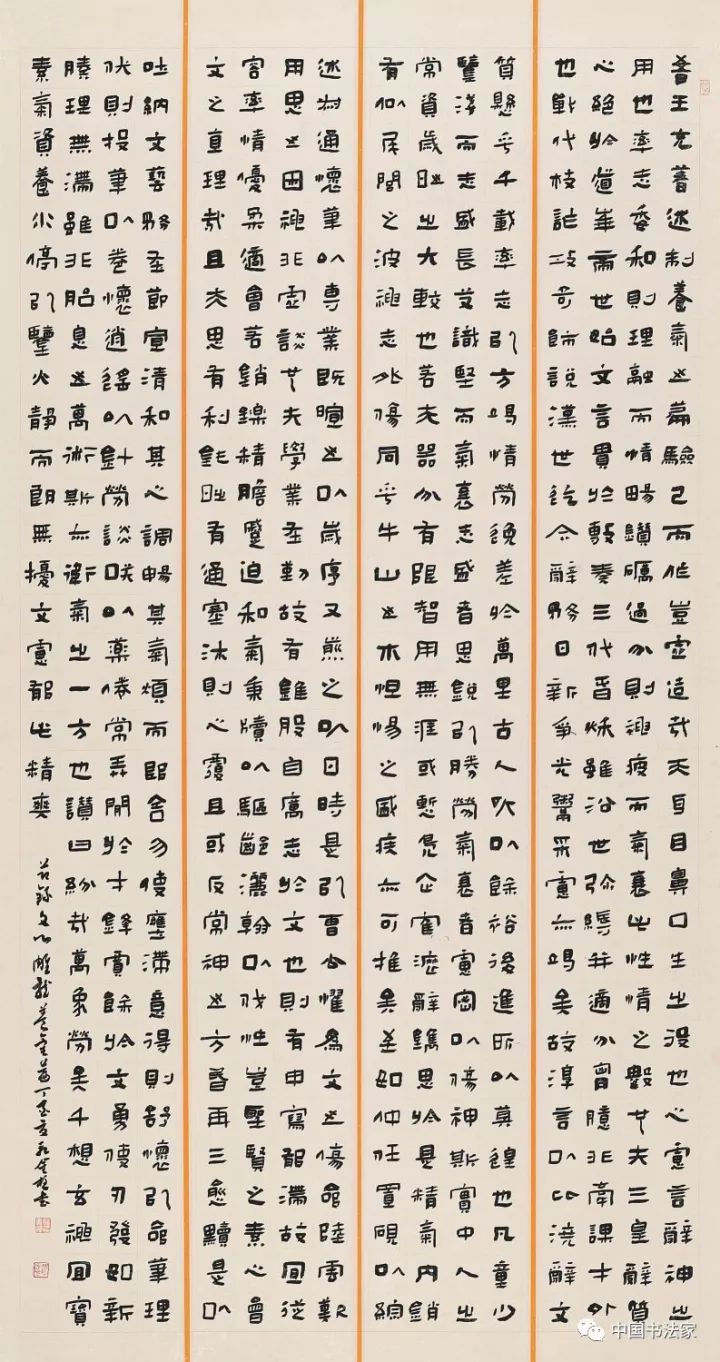 昔王充著述制養氣之篇驗己而作豈虛造哉夫耳目鼻口生之役也心慮言辭神之
用也率志委和則理融而情暢鑽礪過分則神疲而氣衰此性情之數也夫三皇辭質
心絕於道華帝世始文言貴於敷奏三代春秋雖沿世彌縟并適分胷臆非牽課才外
也戰代枝詐攻奇飾說漢世迄今辭務日新爭光鬻采慮亦竭矣故淳言以比澆辭文
質懸乎千載率志以方竭情勞逸差於萬里古人所以餘裕後進所以莫遑也凡童少
鑒淺而志盛長艾識堅而氣衰志盛者思銳以勝勞氣衰者慮密以傷神斯實中人之
常資歲時之大較也若夫器分有限智用無涯或慙鳧企鶴瀝辭鐫思於是精氣內銷
有似尾閭之波神志外傷同乎牛山之木怛惕之盛疾亦可推矣至如仲任置硯以綜
述叔通懷筆以專業既暄之以歲序又煎之以日時是以曹公懼為文之傷命陸雲歎
用思之困神非虛談也夫學業在勤故有錐股自厲志於文也則有申寫鬱滯故宜從
容率情優柔適會若銷鑠精膽蹙迫和氣秉牘以驅齡灑翰以伐性豈聖賢之素心會
文之直理哉且夫思有利鈍時有通塞沐則心覆且或反常神之方昏再三愈黷是以
吐納文藝務在節宣清和其心調暢其氣煩而即舍勿使壅滯意得則舒懷以命筆理
伏則投筆以卷懷逍遙以針勞談笑以藥倦常弄閒於才鋒賈餘於文勇使刃發如新
腠理無滯雖非胎息之萬術斯亦衛氣之一方也讚曰紛哉萬象勞矣千想玄神宜寶
素氣資養水停以鑒火靜而朗無擾文慮鬱此精爽
文心雕龍養氣篇丁酉夏
中国书法家